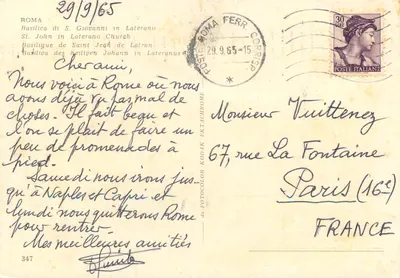 29/9/65
ROMA
Basilica di S. Giovanni in Laterano
St. John in Lateranu Church
Basilique de Saint Jean de Latran
Basilika des Heiligen Johann in Lateranus
Cher ami,
Nous voici à Rome où nous
avons déjà vu pas mal de
choses. Il fait beau et
l'on se plait de faire un
peu de promenades à
pied.
Samedi nous irons jus-
qu'à Naples et Capri et
lundi nous quitterons Rome
pour rentrer.
Mes meilleures amitiés
347
FOTOCOLOR KODAK EKTACHROME
POSTE ROMA FERR. CORRISP.
29.9.65-15
30
POSTE ITALIANE
Monsieur Vuittenez
67, rue La Fontaine
Paris (16e)
FRANCE